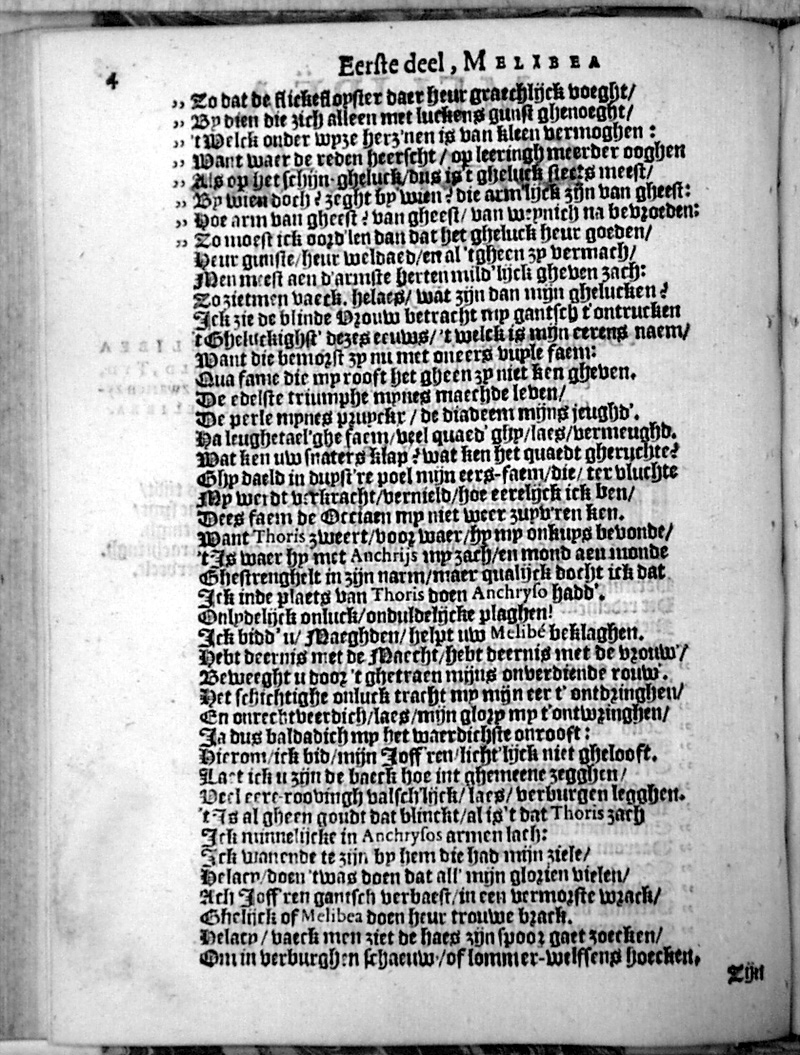 4
Eerste deel, MELIBEA
,, Zo dat de flickeflopster daer heur graechlijck voeght/
,, By dien die zich alleen met luckens gunst ghenoeght/
,, 't Welck onder wyze herz'nen is van kleen vermoghen:
,, Want waer de reden heerscht/ op leeringh meerder ooghen
,, Als op het schijn-gheluck/dus is't gheluck steets meest/
,, By wien doch? zeght by wien? die arm'lijck zijn van gheest:
,, Hoe arm van gheest? van gheest/ van weynich na bevroeden:
,, Zo moest ick oord'len dan dat het gheluck heur goeden/
Heur gunste/heur weldaed/en al 'tgheen zy vermach/
Men meest aen d'armste herten mild'lijck gheven zach:
Zo zietmen vaeck. helaes/ wat zijn dan mijn ghelucken?
Ick zie de blinde Vrouw betracht my gantsch t'ontrucken
't Gheluckighst' dezes eeuws/ 't welck is mijn eerens naem/
Want die bemorst zy nu met oneers vuyle faem:
Qua fame die my rooft het gheen zy niet ken gheven.
De edelste triumphe mynes maechde leven/
De perle mynes pruyckx/ de diadeem mijns jeughd'.
Ha leughetael'ghe faem/veel quaed' ghy/laes/vermeughd.
Wat ken uw snaters klap? wat ken het quaedt gheruchte?
Ghy daeld in duyst're poel mijn eers-faem/die/ ter vluchte
My werdt verkracht/vernield/hoe eerelijck ick ben/
Dees faem de Occiaen my niet weer zuyv'ren ken.
Want Thoris zweert/voor waer/hy my onkuys bevonde/
't Is waer hy met Anchrijs my zach/en mond aen monde
Ghestrenghelt in zijn narm/maer qualijck docht ick dat
Ick inde plaets van Thoris doen Anchryso hadd'.
Onlydelijck onluck/onduldelijcke plaghen!
Ick bidd' u/ Maeghden/ helpt uw Melibé beklaghen.
Hebt deernis met de Maecht/hebt deernis met de vrouw'/
Beweeght u door 't ghetraen mijns onverdiende rouw'.
Het schichtighe onluck tracht my mijn eer t' ontbringhen/
En onrechtveerdich/laes/mijn glory my t'ontwringhen/
Ja dus baldadich my het waerdichste onrooft:
Hierom/ick bid/mijn Joff'ren/licht'lijck niet ghelooft.
Laet ick u zijn de baeck hoe int ghemeene zegghen/
Veel eere-roovingh valsch'lijck/laes/verburgen legghen.
't Is al gheen goudt dat blinckt/al is't dat Thoris zach
Ick minnelijcke in Anchrysos armen lach:
Ick wanende te zijn by hem die had mijn ziele/
Helaey/doen 'twas doen dat all' mijn glorien vielen/
Ach Joff'ren gantsch verbaest/in een vermorste wrack/
Ghelijck of Melibea doen heur trouwe brack.
Helaey/ vaeck men ziet de haes zijn spoor gaet zoecken/
Om in verburghen schaeuw'/of lommer-welfsens hoecken.
Zijn